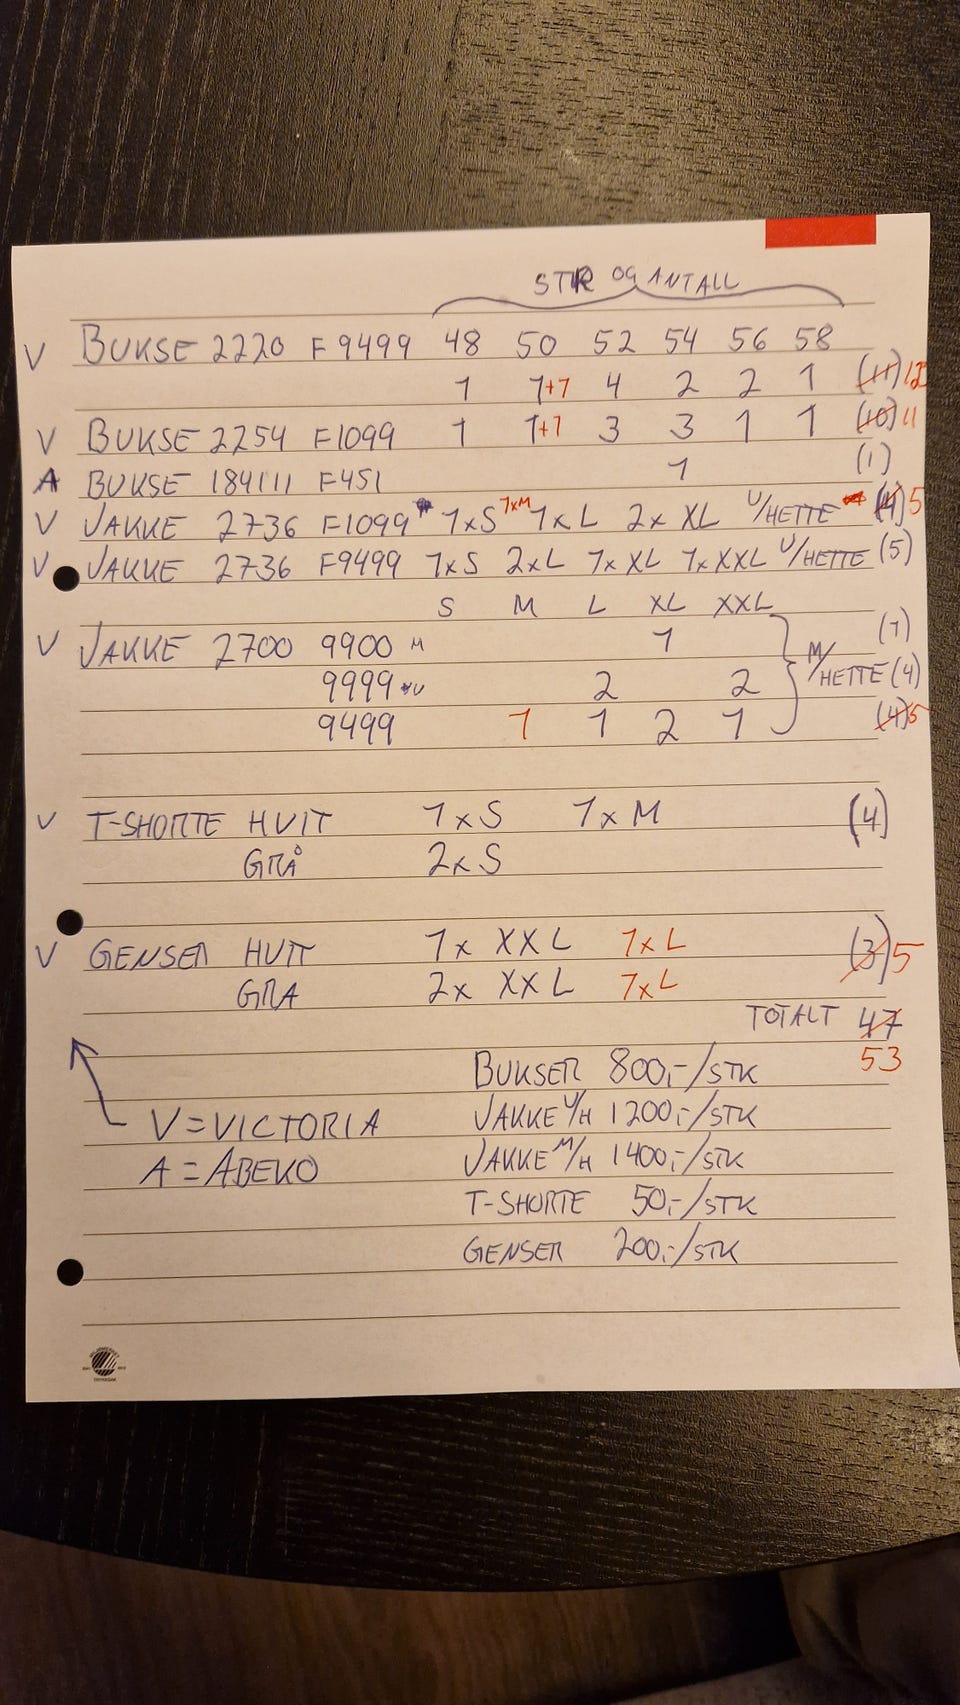 STR OG ANTALL
V BUKSE 2220 F9499 48 50 52 54 56 58
1 1+1 4 2 2 1 (11) 12
V BUKSE 2254 F1099 1 1+1 3 3 1 1 (10) 11
A BUKSE 184111 F451 1 (1)
V JAKKE 2736 F1099 1xS 1xM 1xL 2x XL U/HETTE (4) 5
V JAKKE 2736 F9499 1xS 2xL 1x XL 1x XXL U/HETTE (5)
S M L XL XXL
V JAKKE 2700 9900 M 1 (1)
9999 U 2 2 M/HETTE (4)
9499 1 1 2 1 (4) 5
V T-SHORTE HVIT 1xS 1xM (4)
GRÅ 2xS
V GENSER HVIT 1x XXL 1xL (3) 5
GRA 2x XXL 1xL
TOTALT 47
53
BUKSER 800,-/STK
V=VICTORIA JAKKE U/H 1200,-/STK
A=ABEKO JAKKE M/H 1400,-/STK
T-SHORTE 50,-/STK
GENSER 200,-/STK